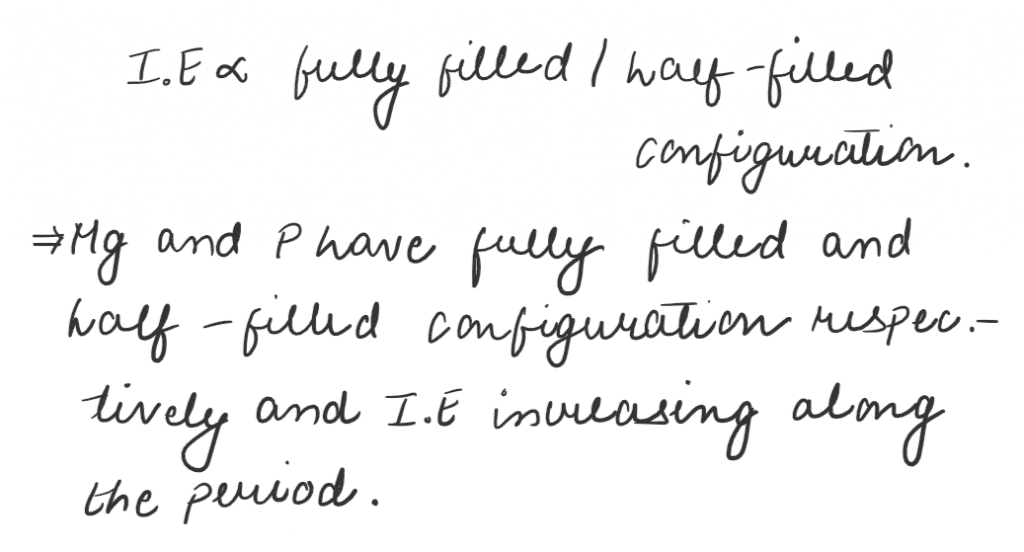 I.E ∝ fully filled / half-filled
configuration.
⇒ Mg and P have fully filled and
half-filled configuration respec.-
tively and I.E increasing along
the period.